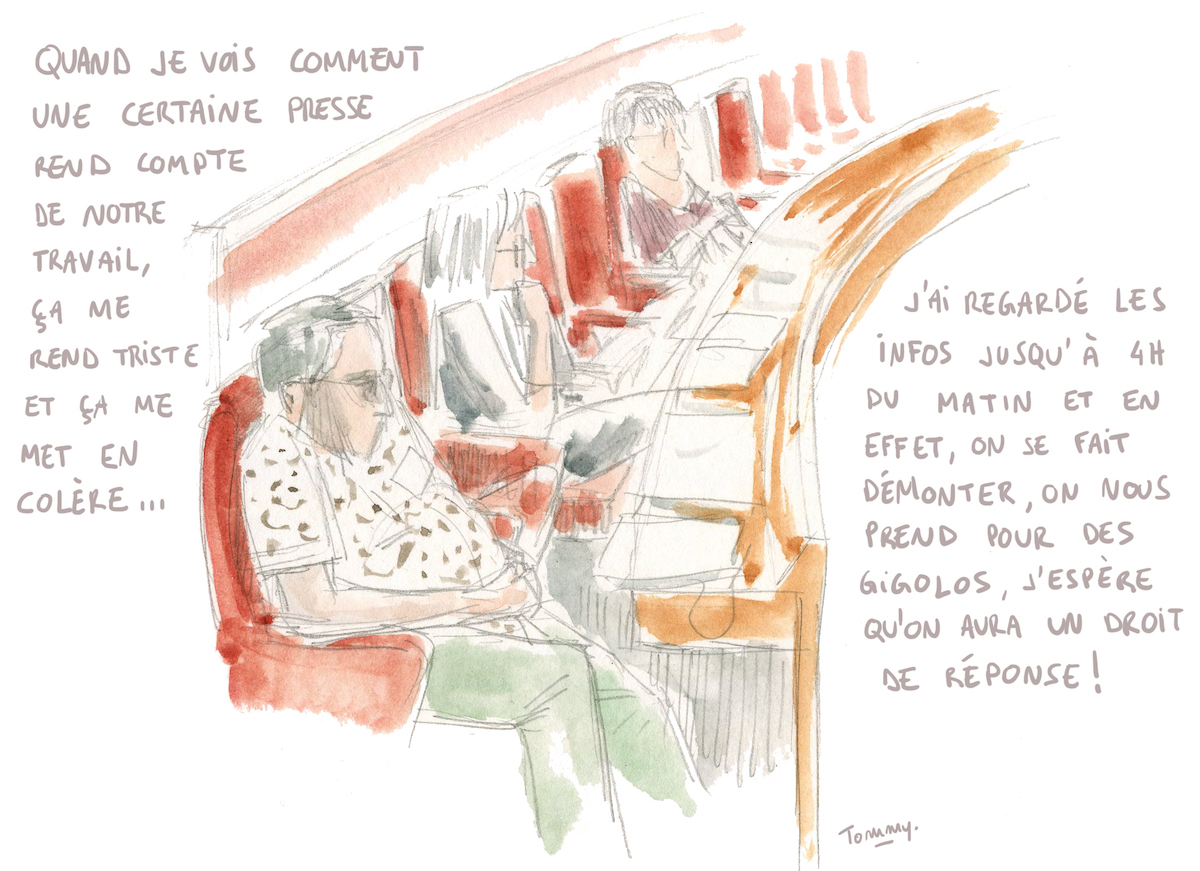 QUAND JE VOIS COMMENT
UNE CERTAINE PRESSE
REND COMPTE
DE NOTRE
TRAVAIL,
ÇA ME
REND TRISTE
ET ÇA ME
MET EN
COLÈRE...
J'AI REGARDÉ LES
INFOS JUSQU'À 4H
DU MATIN ET EN
EFFET, ON SE FAIT
DÉMONTER, ON NOUS
PREND POUR DES
GIGOLOS, J'ESPÈRE
QU'ON AURA UN DROIT
DE RÉPONSE!
Tommy.